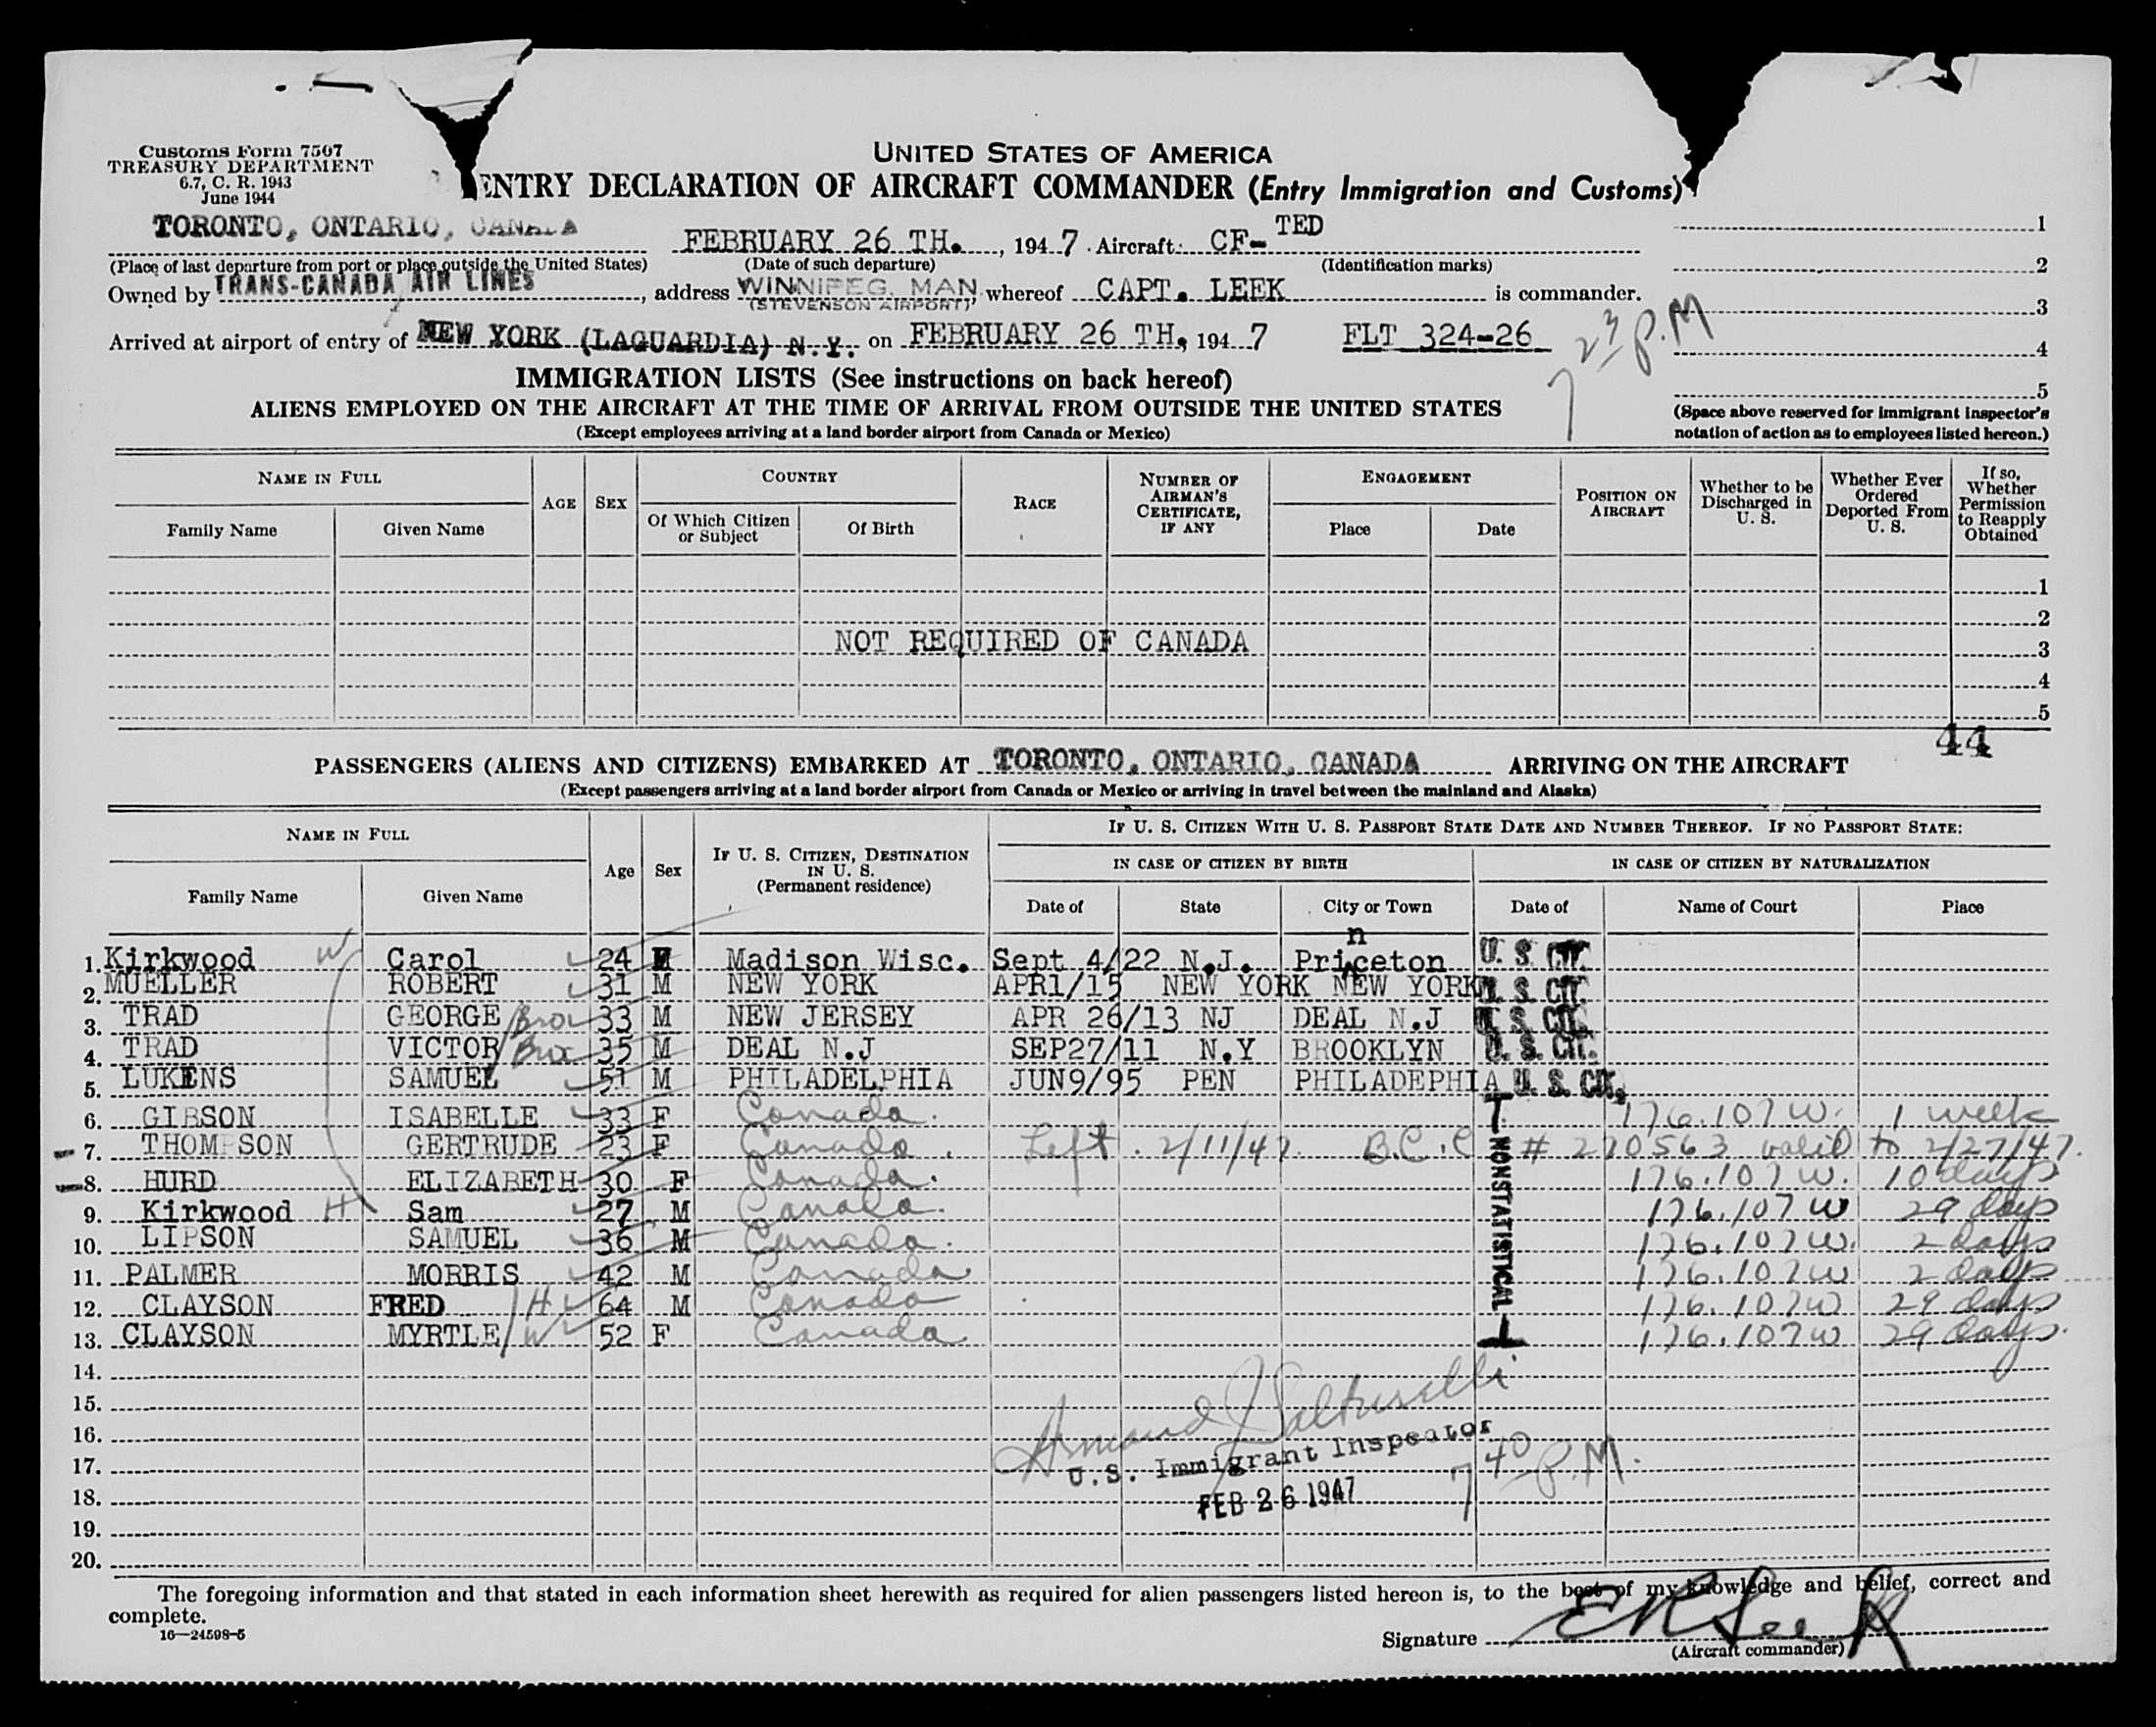 Customs Form 7507
TREASURY DEPARTMENT
6.7, C. R. 1943
June 1944
UNITED STATES OF AMERICA
ENTRY DECLARATION OF AIRCRAFT COMMANDER (Entry Immigration and Customs)
TORONTO, ONTARIO, CANADA FEBRUARY 26 TH., 1947. Aircraft: CF-TED
(Place of last departure from port or place outside the United States) (Date of such departure) (Identification marks)
Owned by TRANS-CANADA AIR LINES, address WINNIPEG, MAN (STEVENSON AIRPORT), whereof CAPT. LEEK is commander.
Arrived at airport of entry of NEW YORK (LAGUARDIA) N.Y. on FEBRUARY 26 TH, 1947 FLT 324-26 7 23 P.M
1
2
3
4
5
(Space above reserved for immigrant inspector's
notation of action as to employees listed hereon.)
IMMIGRATION LISTS (See instructions on back hereof)
ALIENS EMPLOYED ON THE AIRCRAFT AT THE TIME OF ARRIVAL FROM OUTSIDE THE UNITED STATES
(Except employees arriving at a land border airport from Canada or Mexico)
NAME IN FULL
Family Name Given Name
AGE
SEX
COUNTRY
Of Which Citizen or Subject
Of Birth
RACE
NUMBER OF AIRMAN'S CERTIFICATE, IF ANY
ENGAGEMENT
Place Date
POSITION ON AIRCRAFT
Whether to be Discharged in U. S.
Whether Ever Ordered Deported From U. S.
If so, Whether Permission to Reapply Obtained
1
2
NOT REQUIRED OF CANADA 3
4
5
44
PASSENGERS (ALIENS AND CITIZENS) EMBARKED AT TORONTO, ONTARIO, CANADA ARRIVING ON THE AIRCRAFT
(Except passengers arriving at a land border airport from Canada or Mexico or arriving in travel between the mainland and Alaska)
NAME IN FULL
Family Name Given Name
Age
Sex
IF U. S. CITIZEN, DESTINATION IN U. S. (Permanent residence)
IF U. S. CITIZEN WITH U. S. PASSPORT STATE DATE AND NUMBER THEREOF. IF NO PASSPORT STATE:
IN CASE OF CITIZEN BY BIRTH IN CASE OF CITIZEN BY NATURALIZATION
Date of State City or Town Date of Name of Court Place
1. Kirkwood W Carol 24 F Madison Wisc. Sept 4/22 N.J. Princeton U. S. CIT.
2. MUELLER ROBERT 31 M NEW YORK APR1/15 NEW YORK NEW YORK U. S. CIT.
3. TRAD GEORGE Bro 33 M NEW JERSEY APR 26/13 NJ DEAL N.J U. S. CIT.
4. TRAD VICTOR Bro 35 M DEAL N.J SEP27/11 N.Y BROOKLYN U. S. CIT.
5. LUKENS SAMUEL 51 M PHILADELPHIA JUN9/95 PEN PHILADEPHIA U. S. CIT.
6. GIBSON ISABELLE 33 F Canada. 176.107 W. 1 week
7. THOMPSON GERTRUDE 23 F Canada. Left. 2/11/47. B.C.C # 270563 valid to 2/27/47.
8. HURD ELIZABETH 30 F Canada. 176.107 W. 10 days
9. Kirkwood H Sam 27 M Canada. 176.107 W 29 days
10. LIPSON SAMUEL 36 M Canada. 176.107 W. 2 days
11. PALMER MORRIS 42 M Canada 176.107 W 2 days
12. CLAYSON FRED H 64 M Canada 176.107 W 29 days
13. CLAYSON MYRTLE W 52 F Canada 176.107 W 29 days.
NONSTATISTICAL
14.
15.
16.
17.
18.
19.
20.
Armand
U.S. Immigrant Inspector
FEB 26 1947
7 40 P.M.
The foregoing information and that stated in each information sheet herewith as required for alien passengers listed hereon is, to the best of my knowledge and belief, correct and
complete.
16—24598-5
Signature E R Leek
(Aircraft commander)